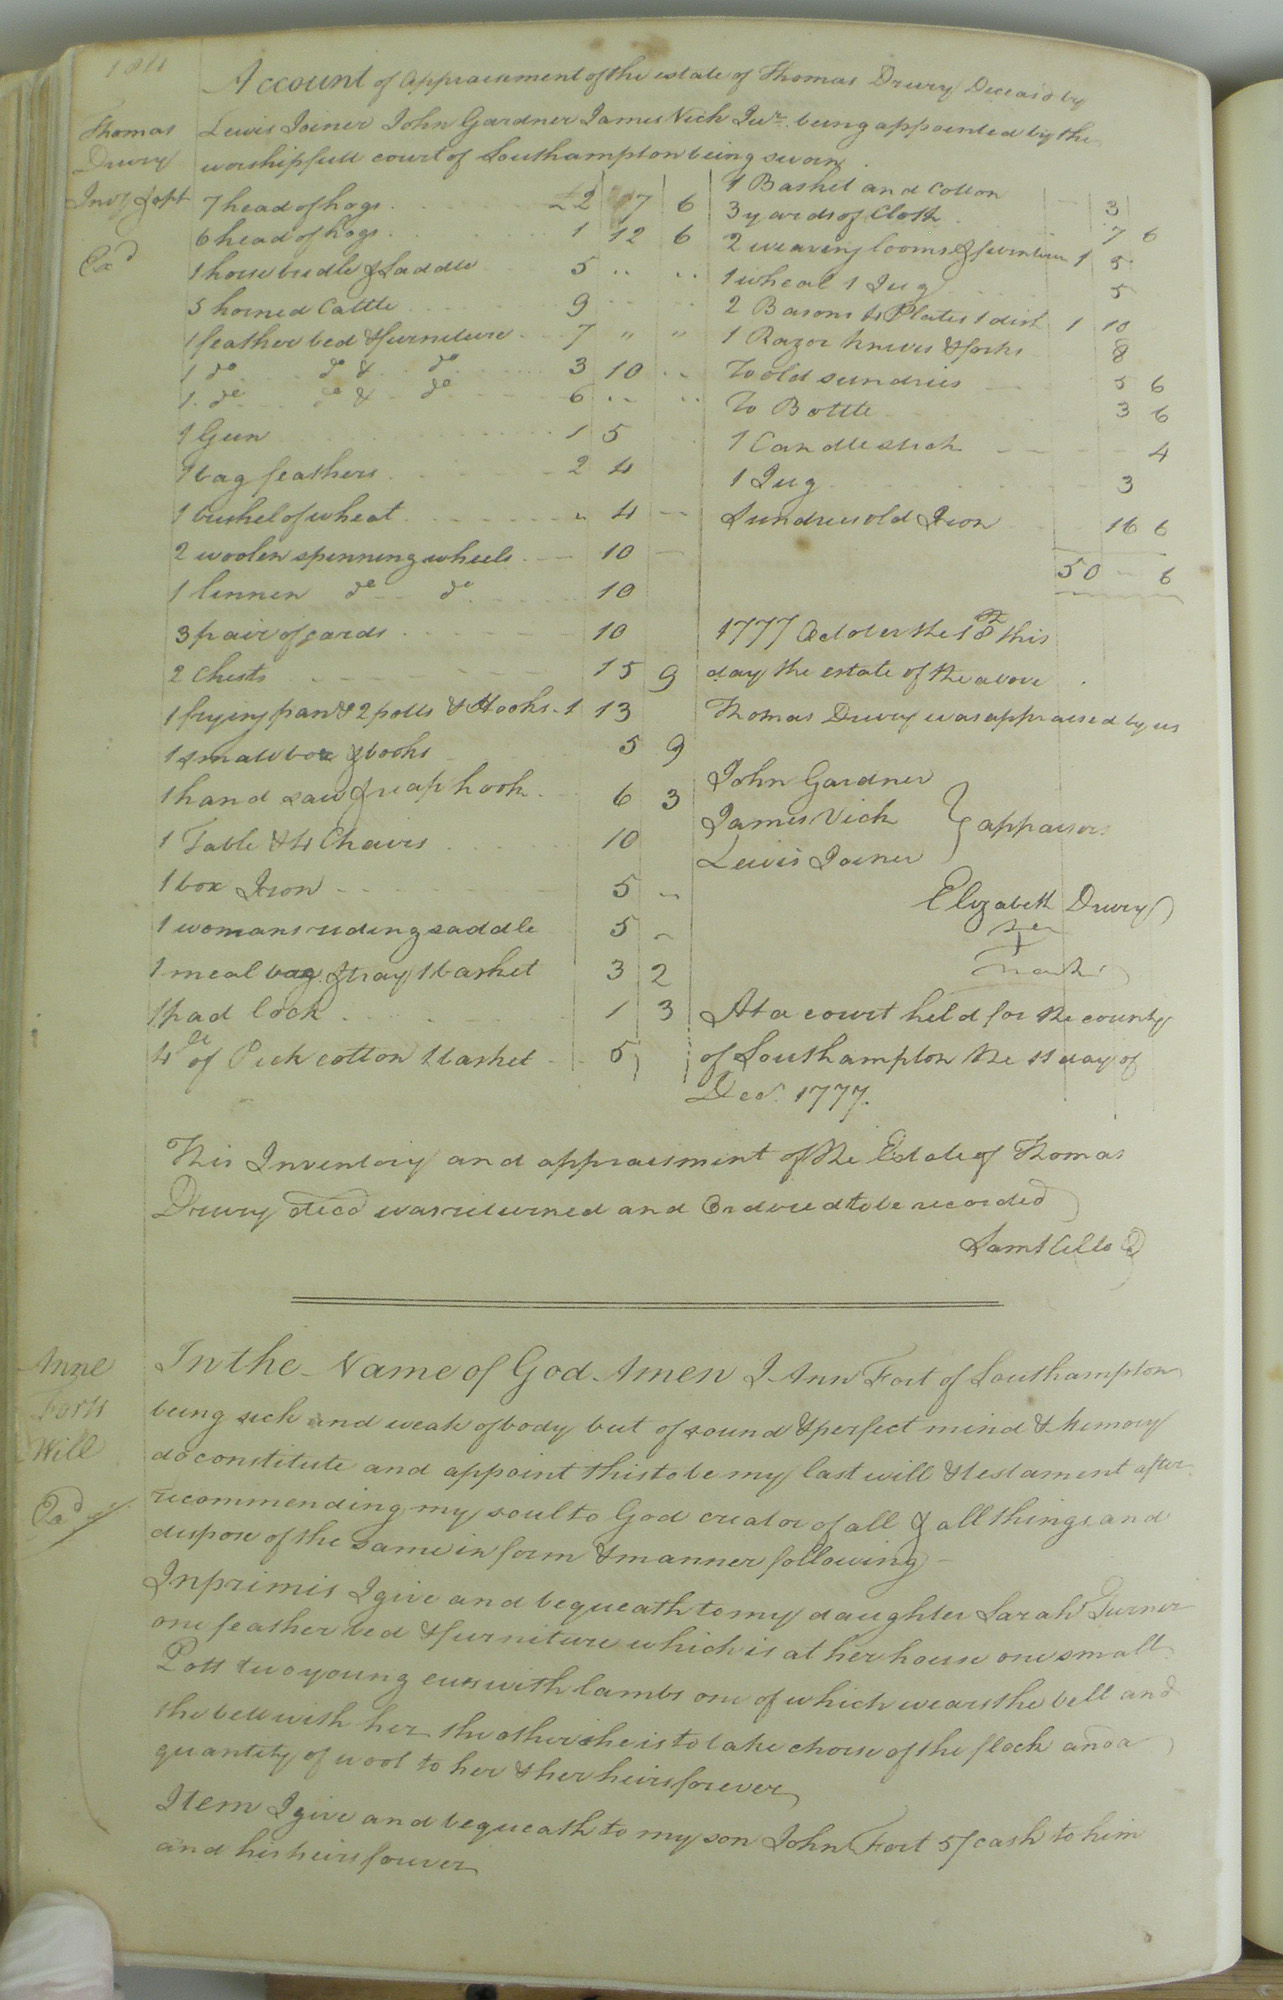 1811
Account of Appraisement of the estate of Thomas Drury Deceasd by
Lewis Joiner John Gardner James Vick Jur. being appointed by the
worshipfull court of Southampton being sworn.
Thomas
Drury
Invy & apt
Exd
7 head of hogs £2 17 6
6 head of hogs 1 12 6
1 horse bridle & Saddle 5 .. ..
5 horned Cattle 9 .. ..
1 feather bed & furniture 7 " "
1 do do & do 3 10 ..
1 do do & do 6 .. ..
1 Gun 1 5
1 bag feathers 2 4
1 bushel of wheat " 4 --
2 woolen spinning wheels 10 --
1 linnen do do 10
3 pair of cards 10
2 Chests 15 9
1 frying pan & 2 potts & Hooks 1 13
1 small box & books 5 9
1 hand saw & reap hook 6 3
1 Table & 4 Chairs 10
1 box Iron 5 --
1 womans riding saddle 5 --
1 meal bag & tray 1 basket 3 2
1 pad lock 1 3
4 lb of Pick cotton 1 basket 5
1 Basket and Cotton 3
3 yards of Cloth 7 6
2 weaving looms & furniture 1 5
1 wheal 1 Jug 5
2 Basons 4 Plates 1 dish 1 10
1 Razor knives & forks 8
To old sundries 5 6
To Bottle 3 6
1 Candlestick 4
1 Jug 3
Sundries old Iron 16 6
50 -- 6
1777 October the 18th this
day the estate of the above
Thomas Drury was appraised by us
John Gardner
James Vick } appaisors
Lewis Joiner
Elizabeth Drury
her
+
mark
At a court held for the county
of Southampton the 11 day of
Decr. 1777.
This Inventory and appraisment of the Estate of Thomas
Drury decd was returned and Ordered to be recorded
Saml Kello
Anne
Forts
Will
In the Name of God Amen I Ann Fort of Southampton
being sick and weak of body but of sound & perfect mind & memory
do constitute and appoint this to be my last will & testament after
recommending my soul to God creator of all & all things and
dispose of the same in form & manner following
Inprimis I give and bequeath to my daughter Sarah Turner
one feather bed & furniture which is at her house one small
Pott two young ews with lambs one of which wears the bell and
the bell with her the other she is to take choise of the flock and a
quantity of wool to her & her heirs forever
Item I give and bequeath to my son John Fort 5/ cash to him
and his heirs forever